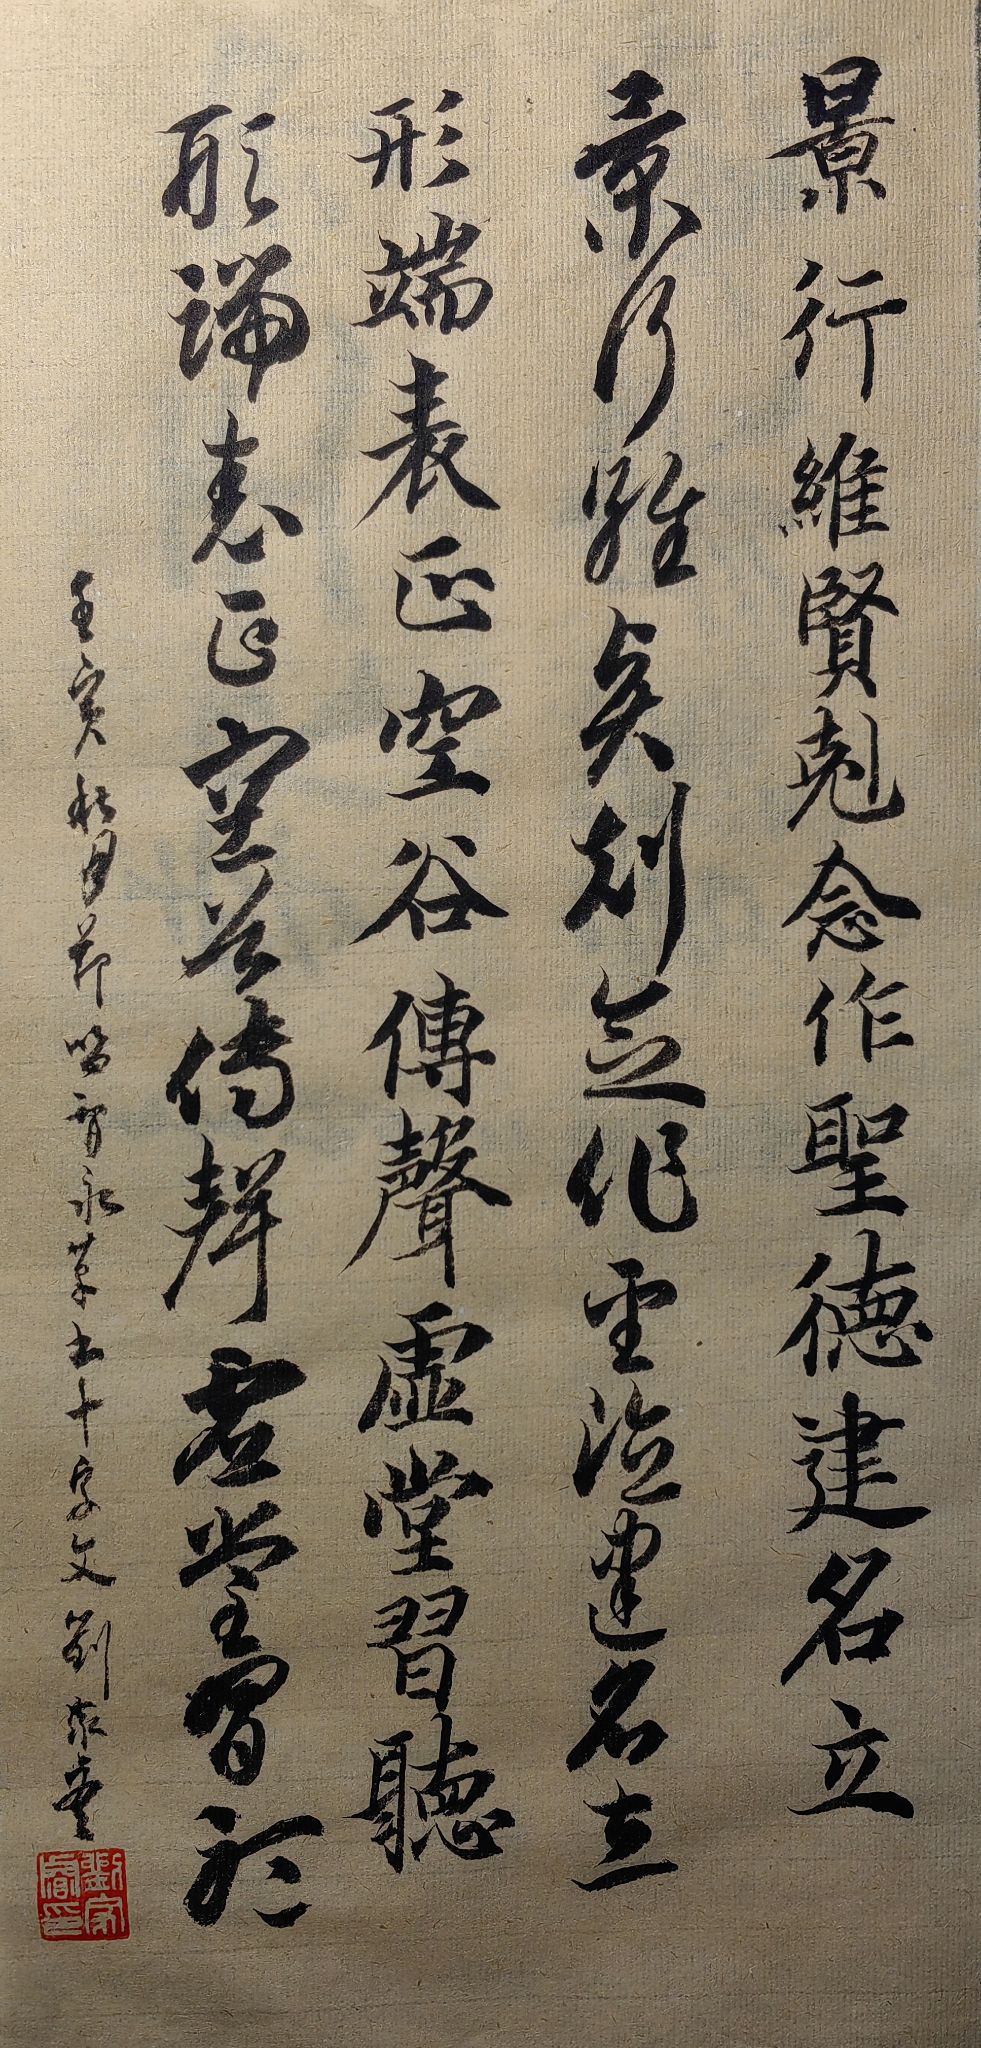 景行維賢剋念作聖德建名立
景行維賢剋念作聖德建名立
形端表正空谷傳聲虛堂習聽
形端表正空谷傳聲虛堂習聽
壬寅秋月節臨智永草書千字文劉家
劉家印